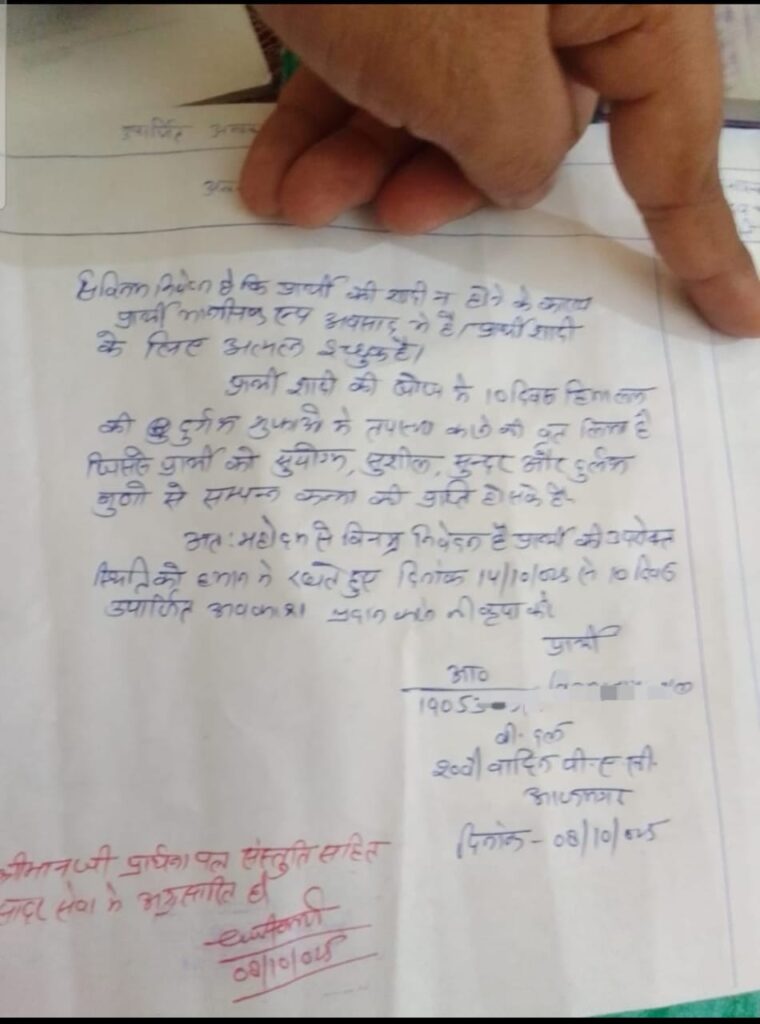 उपार्जित
सविनय निवेदन है कि प्रार्थी की शादी न होने के कारण
प्रार्थी मानसिक रूप अवसाद मे है। प्रार्थी शादी
के लिए अत्यन्त इच्छुक है।
प्रार्थी शादी की खोज मे 10 दिवस हिमालय
की दुर्गम गुफाओ मे तपस्या करने की व्रत लिया है
जिससे प्रार्थी को सुयोग्य, सुशील, सुन्दर और दुर्लभ
गुणो से सम्पन्न कन्या की प्राप्ति हो सके है.
अतः महोदय से विनम्र निवेदन है प्रार्थी की उपरोक्त
स्थिति को ध्यान मे रखते हुए दिनांक 14/10/025 से 10 दिवस
उपार्जित अवकाश प्रदान करने की कृपा करे
प्रार्थी
आ०
बी- दल
20वी वाहिनी पी.ए.सी.
आजमगढ़
दिनांक - 08/10/025
श्रीमान जी प्रार्थना पत्र संस्तुति सहित
सादर सेवा मे अग्रसारित है।
08/10/025